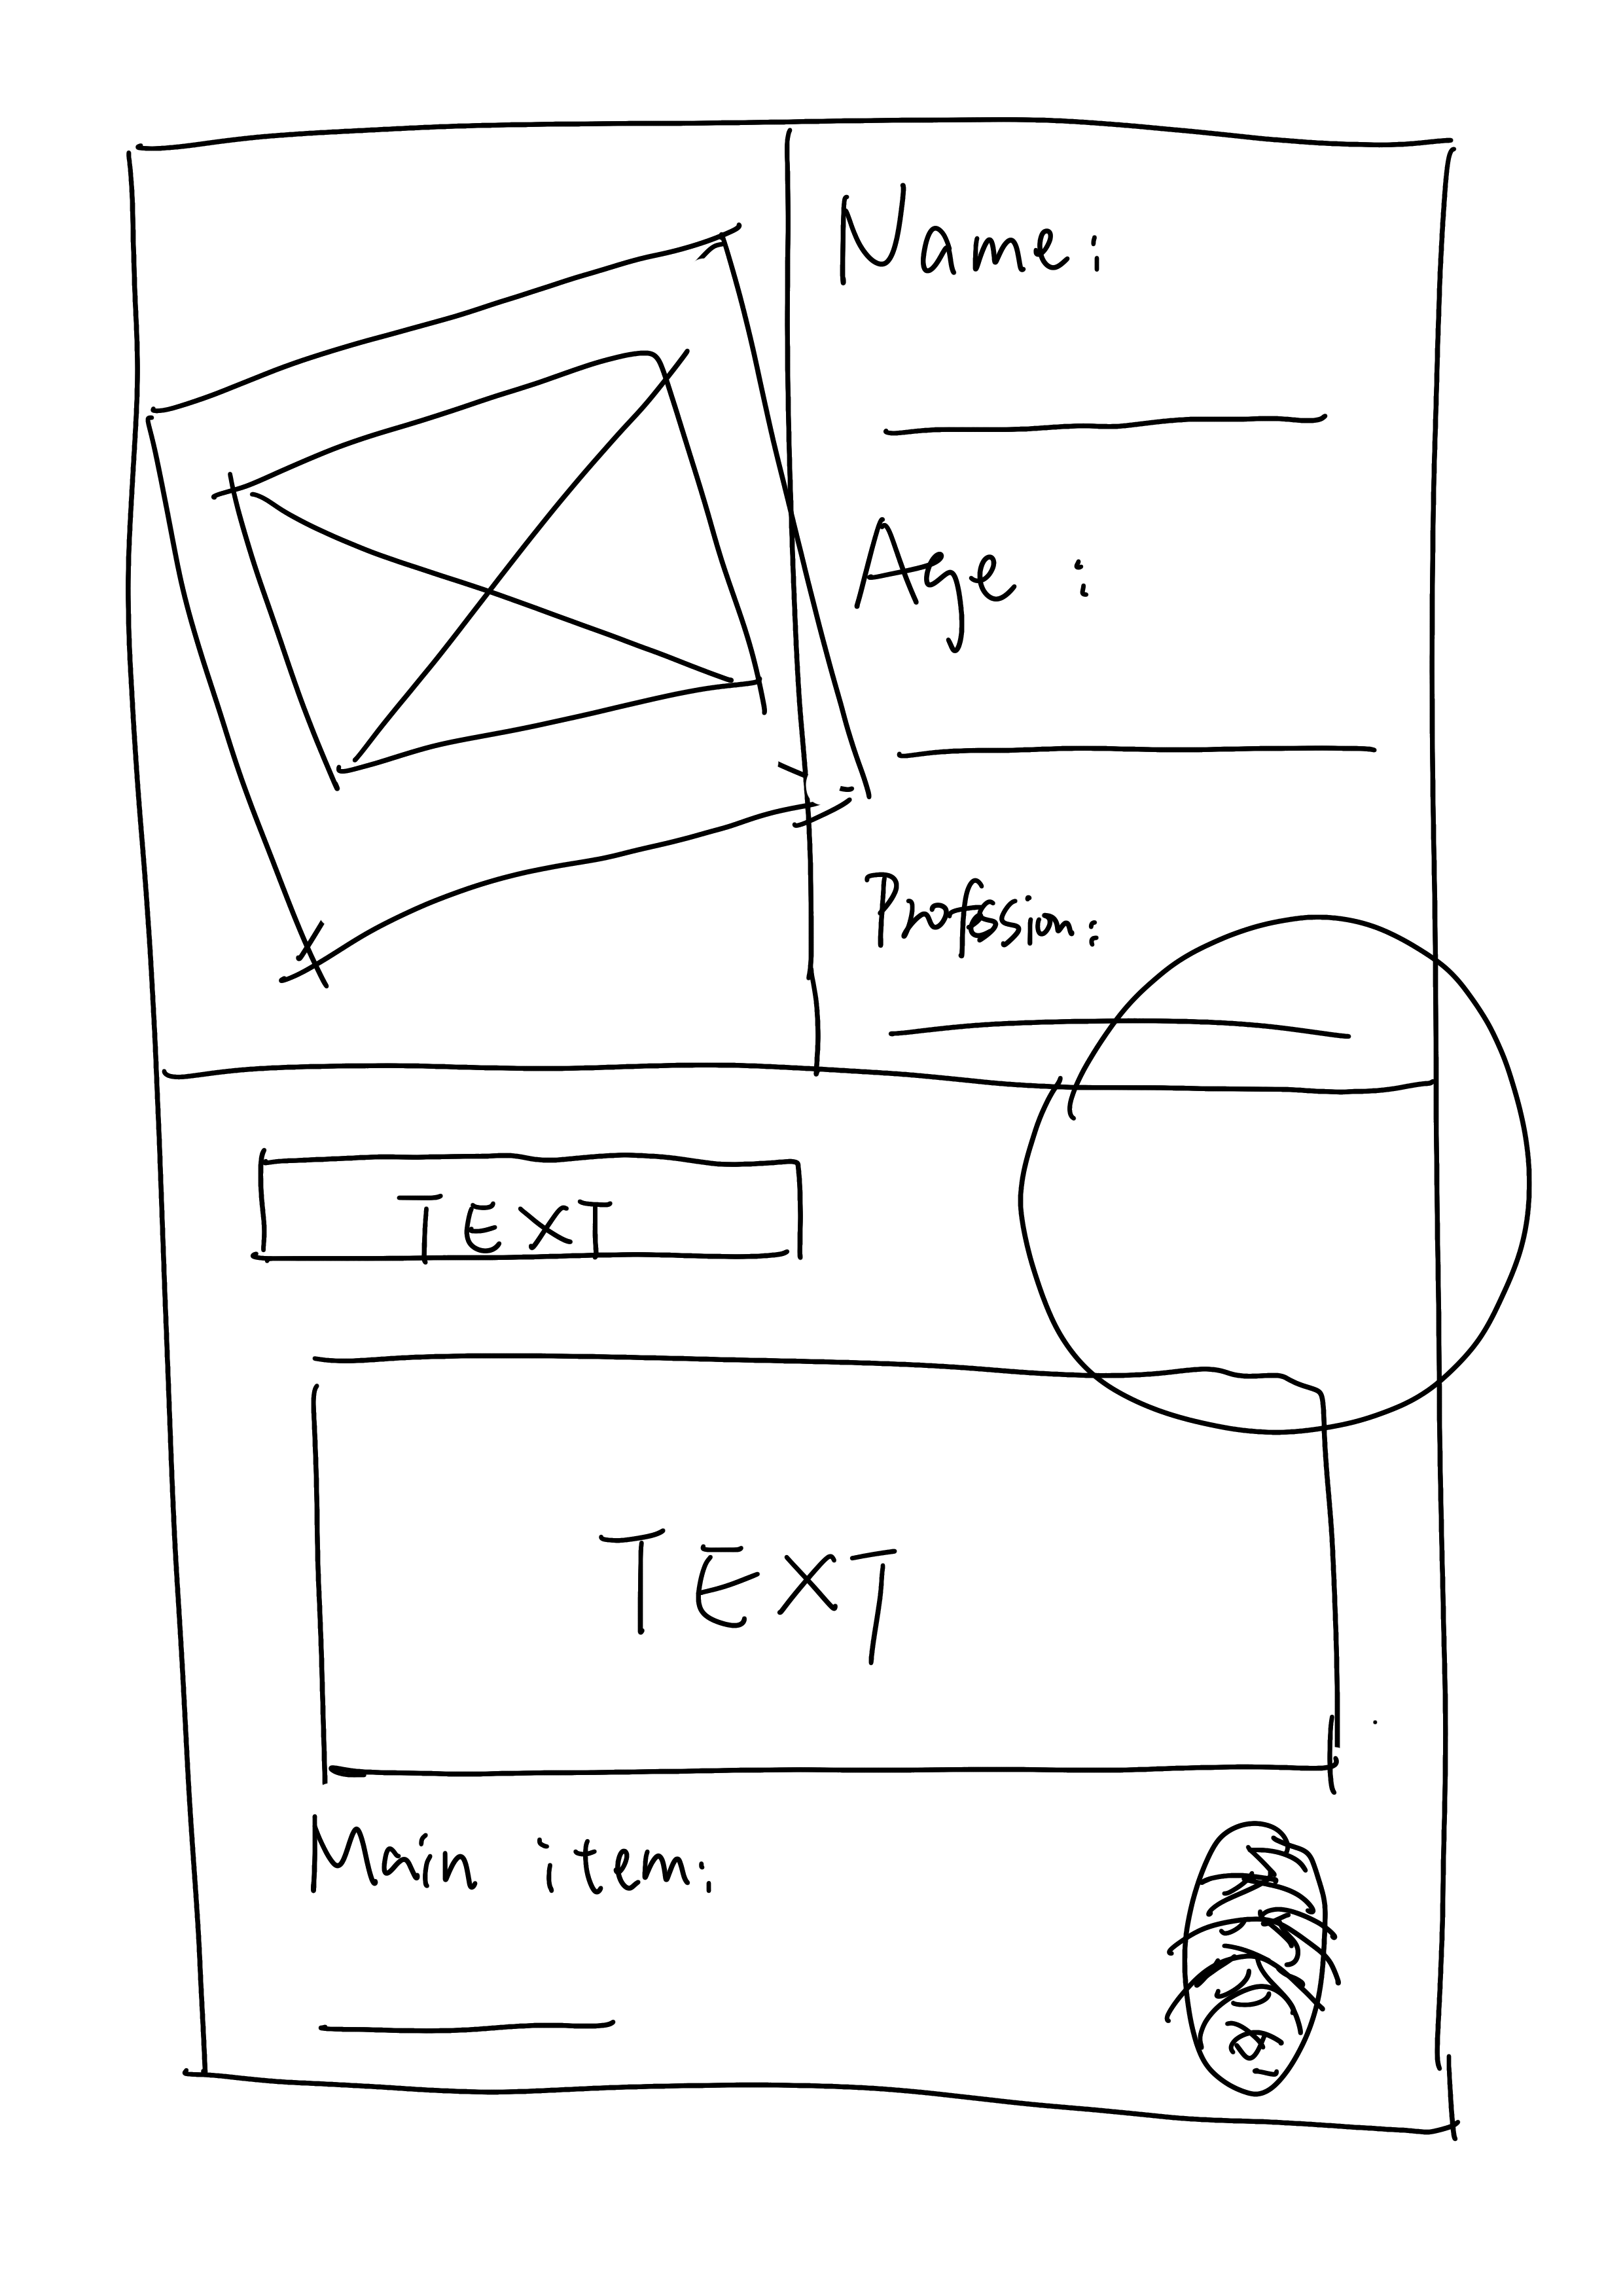 Name:
Age :
Profession:
TEXT
TEXT
Main item: